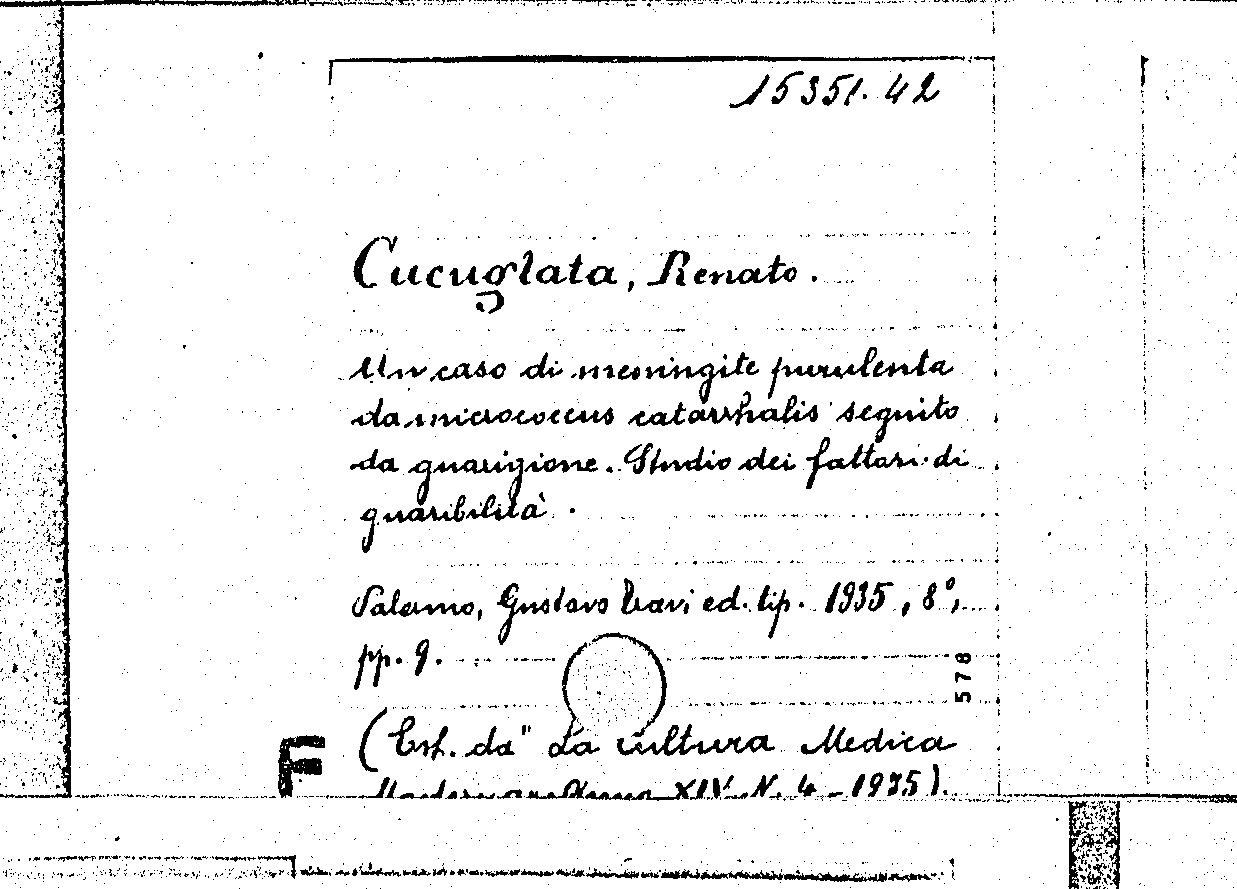 15351.42
Cucuglata, Renato.
Un caso di meningite purulenta
da micrococcus catarrhalis seguito
da guarigione. Studio dei fattori di
guaribilità.
Palermo, Gustavo Travi ed. tip. 1935, 8°,
pp. 9.
578
F
(Est. da "La cultura Medica
Moderna" Anno XIV N. 4 - 1935).